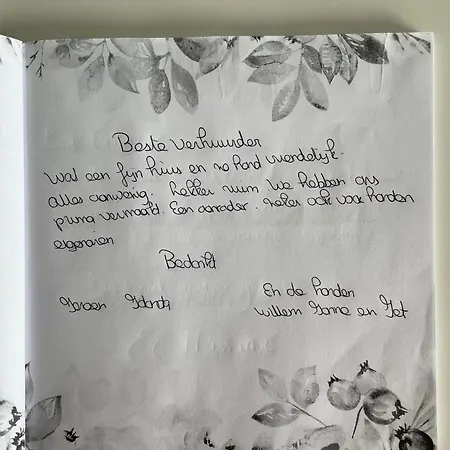 Beste Verhuurder
Wat een fijn huis en zo hond vriendelijk.
alles aanwezig. lekker ruim we hebben ons
prima vermaakt. Een aanrader. zeker ook voor honden
eigenaren
Bedankt
Jeroen
En de honden
willem en Jet